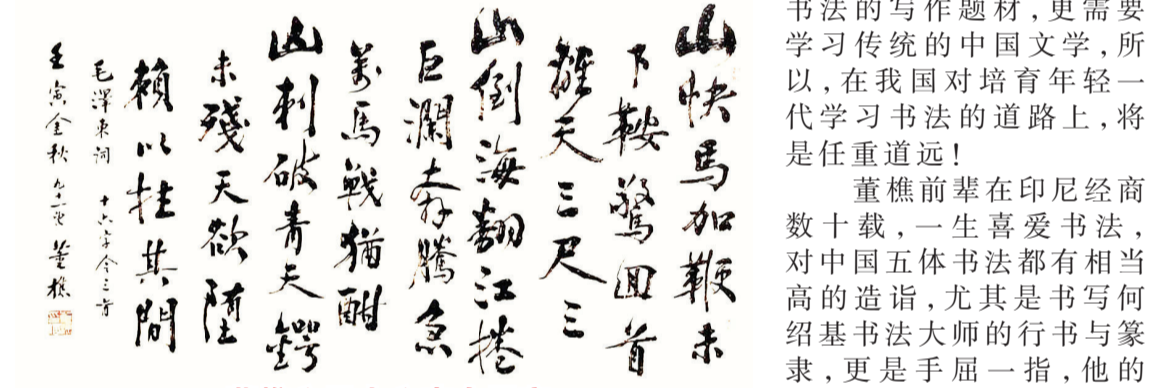 山快馬加鞭未
下鞍驚回首
離天三尺三
山倒海翻江捲
巨瀾奔騰急
萬馬戰猶酣
山刺破青天鍔
未殘天欲墮
賴以拄其間
毛澤東詞 十六字令三首
壬寅金秋 九十一叟 董樵
书法的写作题材,更需要
学习传统的中国文学,所
以,在我国对培育年轻一
代学习书法的道路上,将
是任重道远!
董樵前辈在印尼经商
数十载,一生喜爱书法,
对中国五体书法都有相当
高的造诣,尤其是书写何
绍基书法大师的行书与篆
隶,更是手屈一指,他的